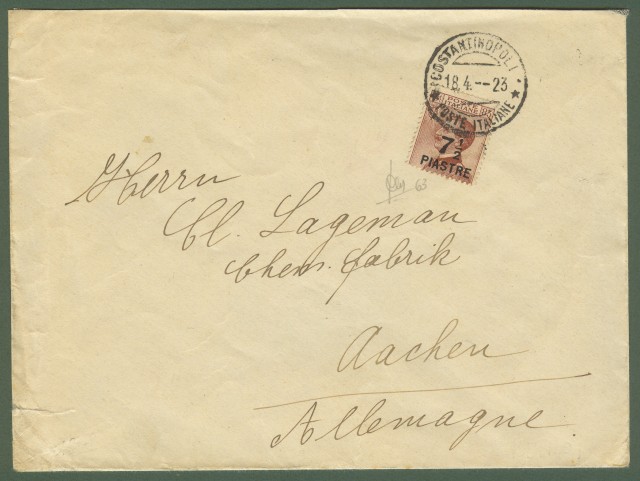 COSTANTINOPOLI
18.4.--23
POSTE ITALIANE
7 1/2
PIASTRE
63
Herrn
Cl. Lageman
Chem. Fabrik
Aachen
Allemagne